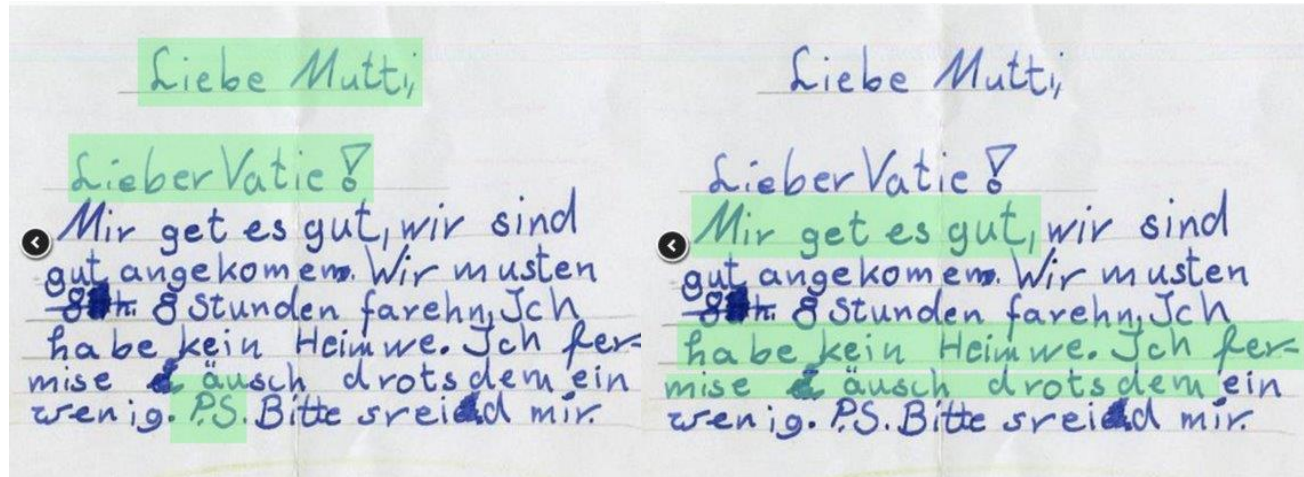 Liebe Mutti,
Lieber Vatie!
Mir get es gut, wir sind
gut angekomem. Wir musten
8 h. 8 Stunden farehn, Ich
habe kein Heimwe. Ich fer-
mise äusch drotsdem ein
wenig. P.S. Bitte sreibd mir.
Liebe Mutti,
Lieber Vatie!
Mir get es gut, wir sind
gut angekomem. Wir musten
8 h. 8 Stunden farehn, Ich
habe kein Heimwe. Ich fer-
mise äusch drotsdem ein
wenig. P.S. Bitte sreibd mir.